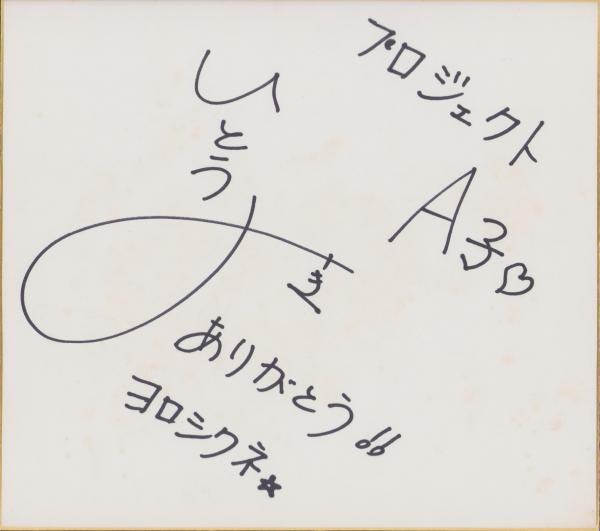 プロジェクト
A子♡
いとう
みき
ありがとう!!
ヨロシクネ☆